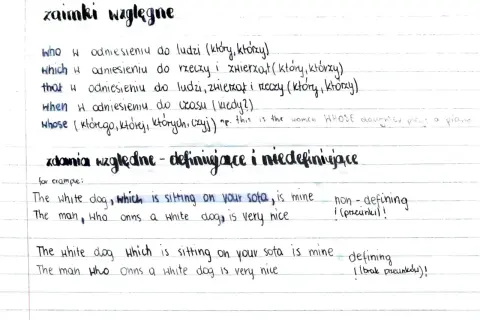 zaimki względne
who w odniesieniu do ludzi (który, którzy)
which w odniesieniu do rzeczy i zwierząt (który, którzy)
that w odniesieniu do ludzi, zwierząt i rzeczy (który, którzy)
when w odniesieniu do czasu (kiedy?)
whose (którego, której, których, czyj) np. this is the woman WHOSE daughter plays a piano
zdania względne - definiujące i niedefiniujące
for example:
The white dog, which is sitting on your sofa, is mine non-defining
The man, who owns a white dog, is very nice ! (przecinki) !
The white dog which is sitting on your sofa is mine defining
The man who owns a white dog is very nice ! (brak przecinków) !